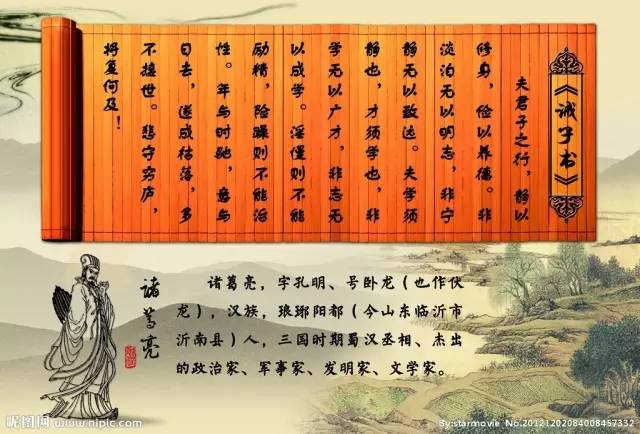 《诫子书》
夫君子之行，静以
修身，俭以养德。非
淡泊无以明志，非宁
静无以致远。夫学须
静也，才须学也，非
学无以广才，非志无
以成学。淫慢则不能
励精，险躁则不能治
性。年与时驰，意与
日去，遂成枯落，多
不接世。悲守穷庐，
将复何及！
诸葛亮
诸葛亮，字孔明、号卧龙（也作伏
龙），汉族，琅琊阳都（今山东临沂市
沂南县）人，三国时期蜀汉丞相、杰出
的政治家、军事家、发明家、文学家。
昵图网 www.nipic.com
By:starmovie No.20121202084008457332